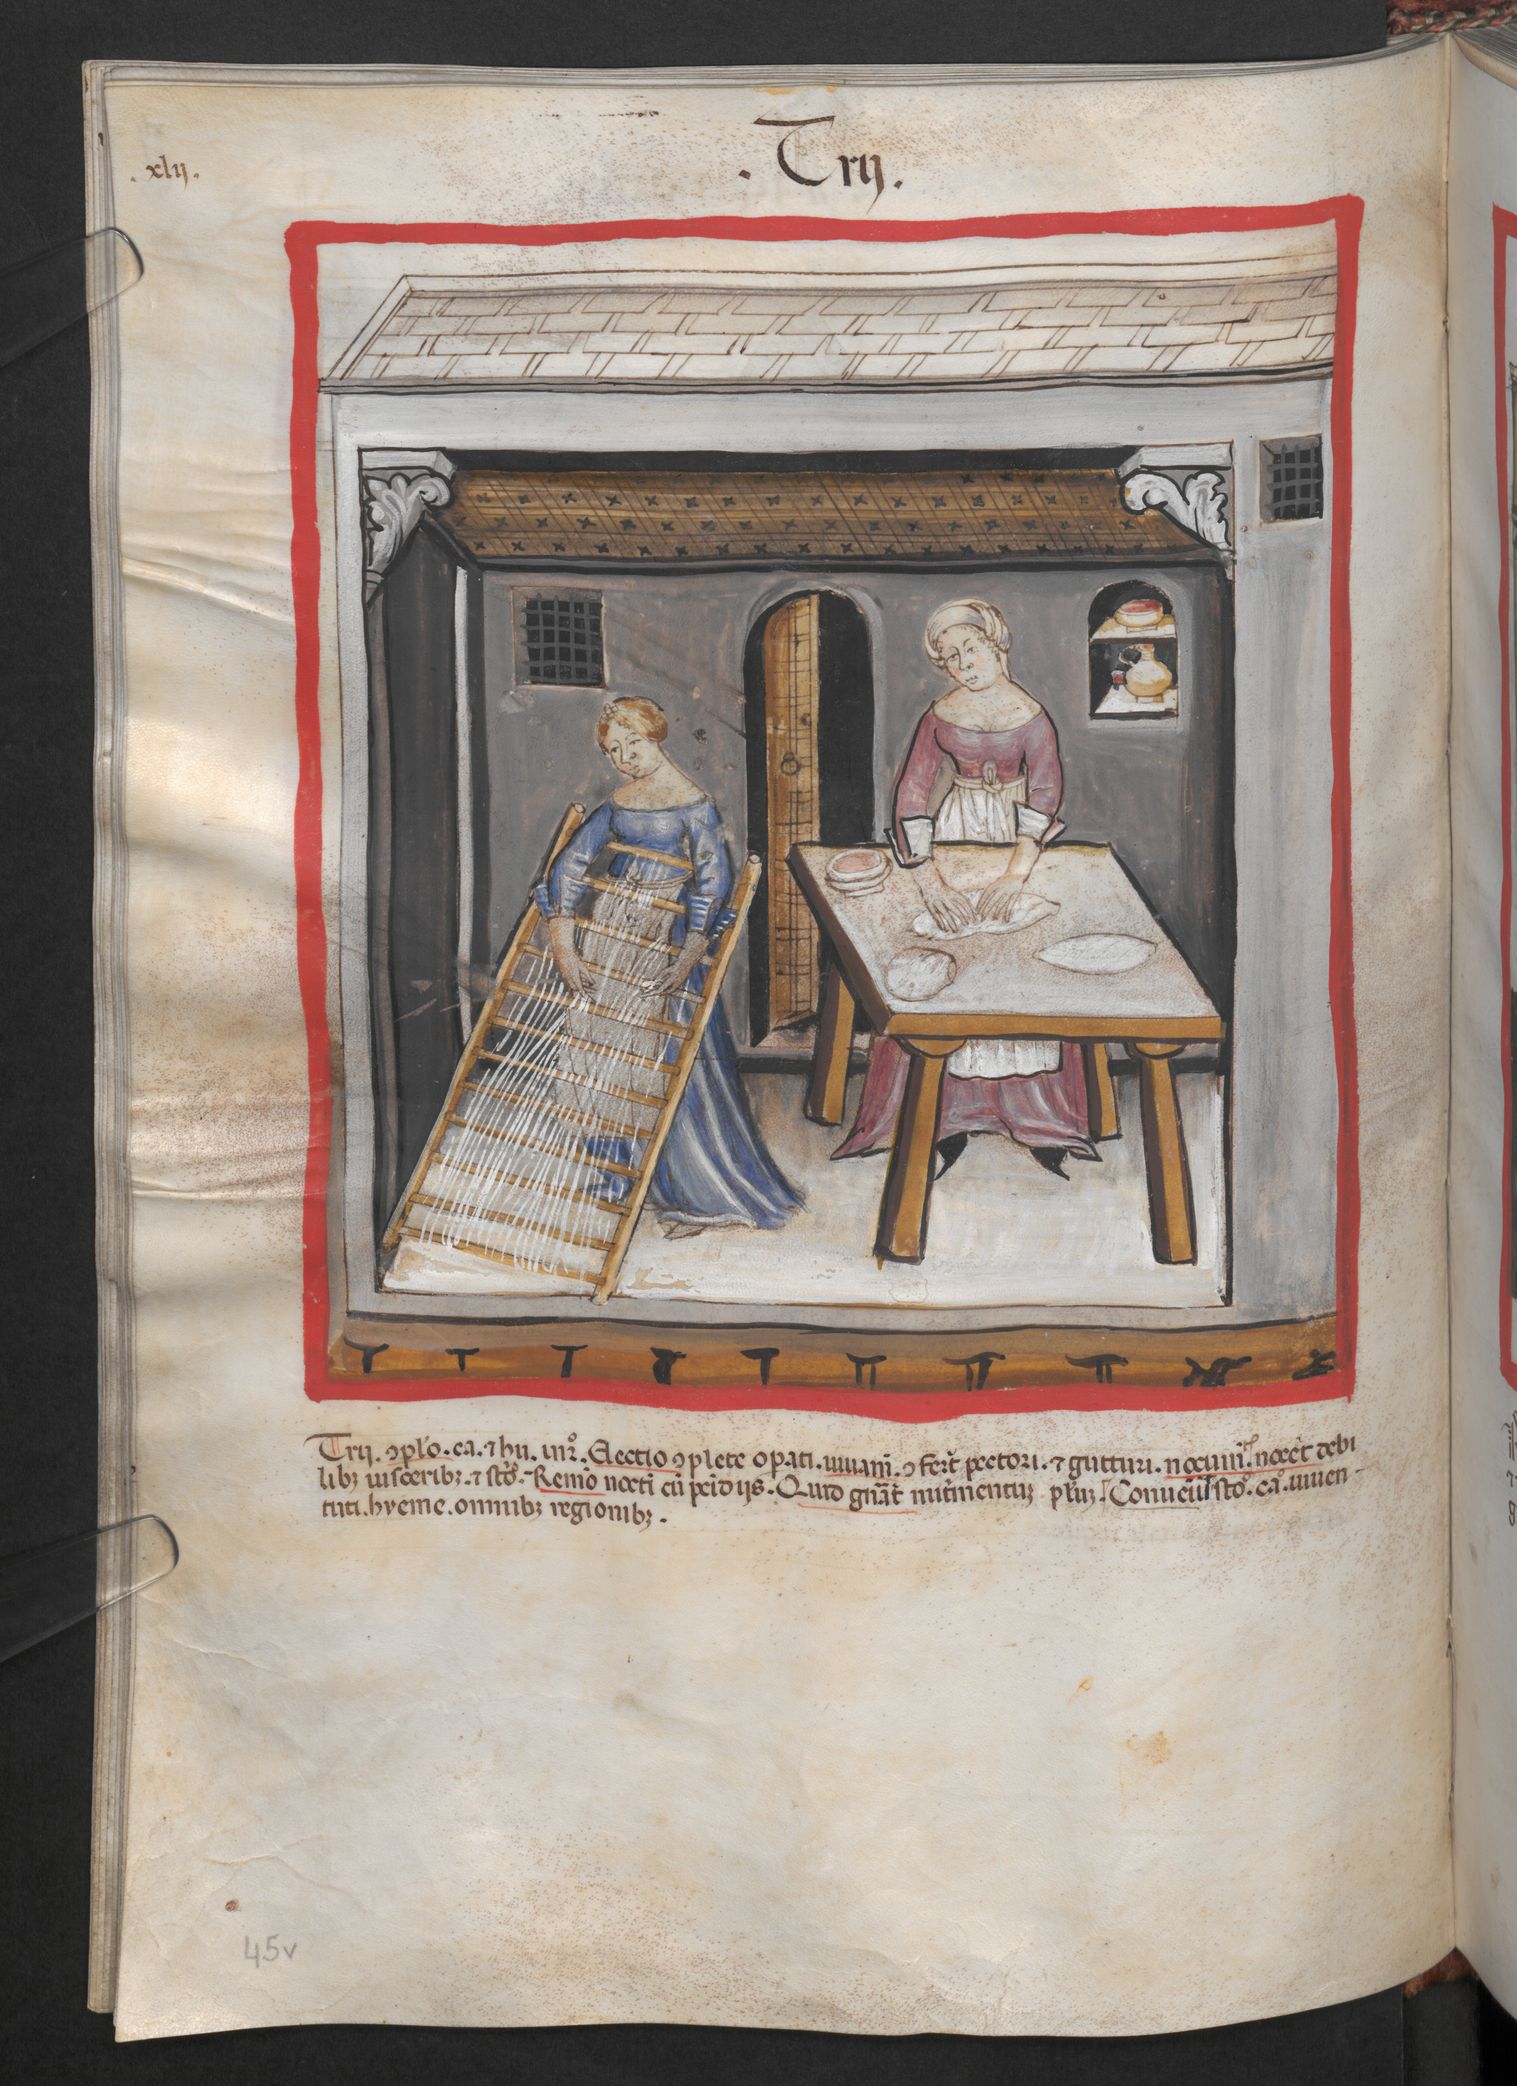 .xlij.
. Trij .
Trij. ꝯpl̄o. ca. ⁊ hu. in 2°. Electio ꝯplete opati. iuuam̄. ꝯfert pectori. ⁊ gutturi. nocum̄. nocet debi
libꝫ uisceribꝫ. ⁊ sto°. Remō nocti cū penidijs. Quid gn̄at nut͛mentuꝫ Conueniūt ca°. iuuen-
tuti. hyeme. omnibꝫ regionibꝫ.
45v